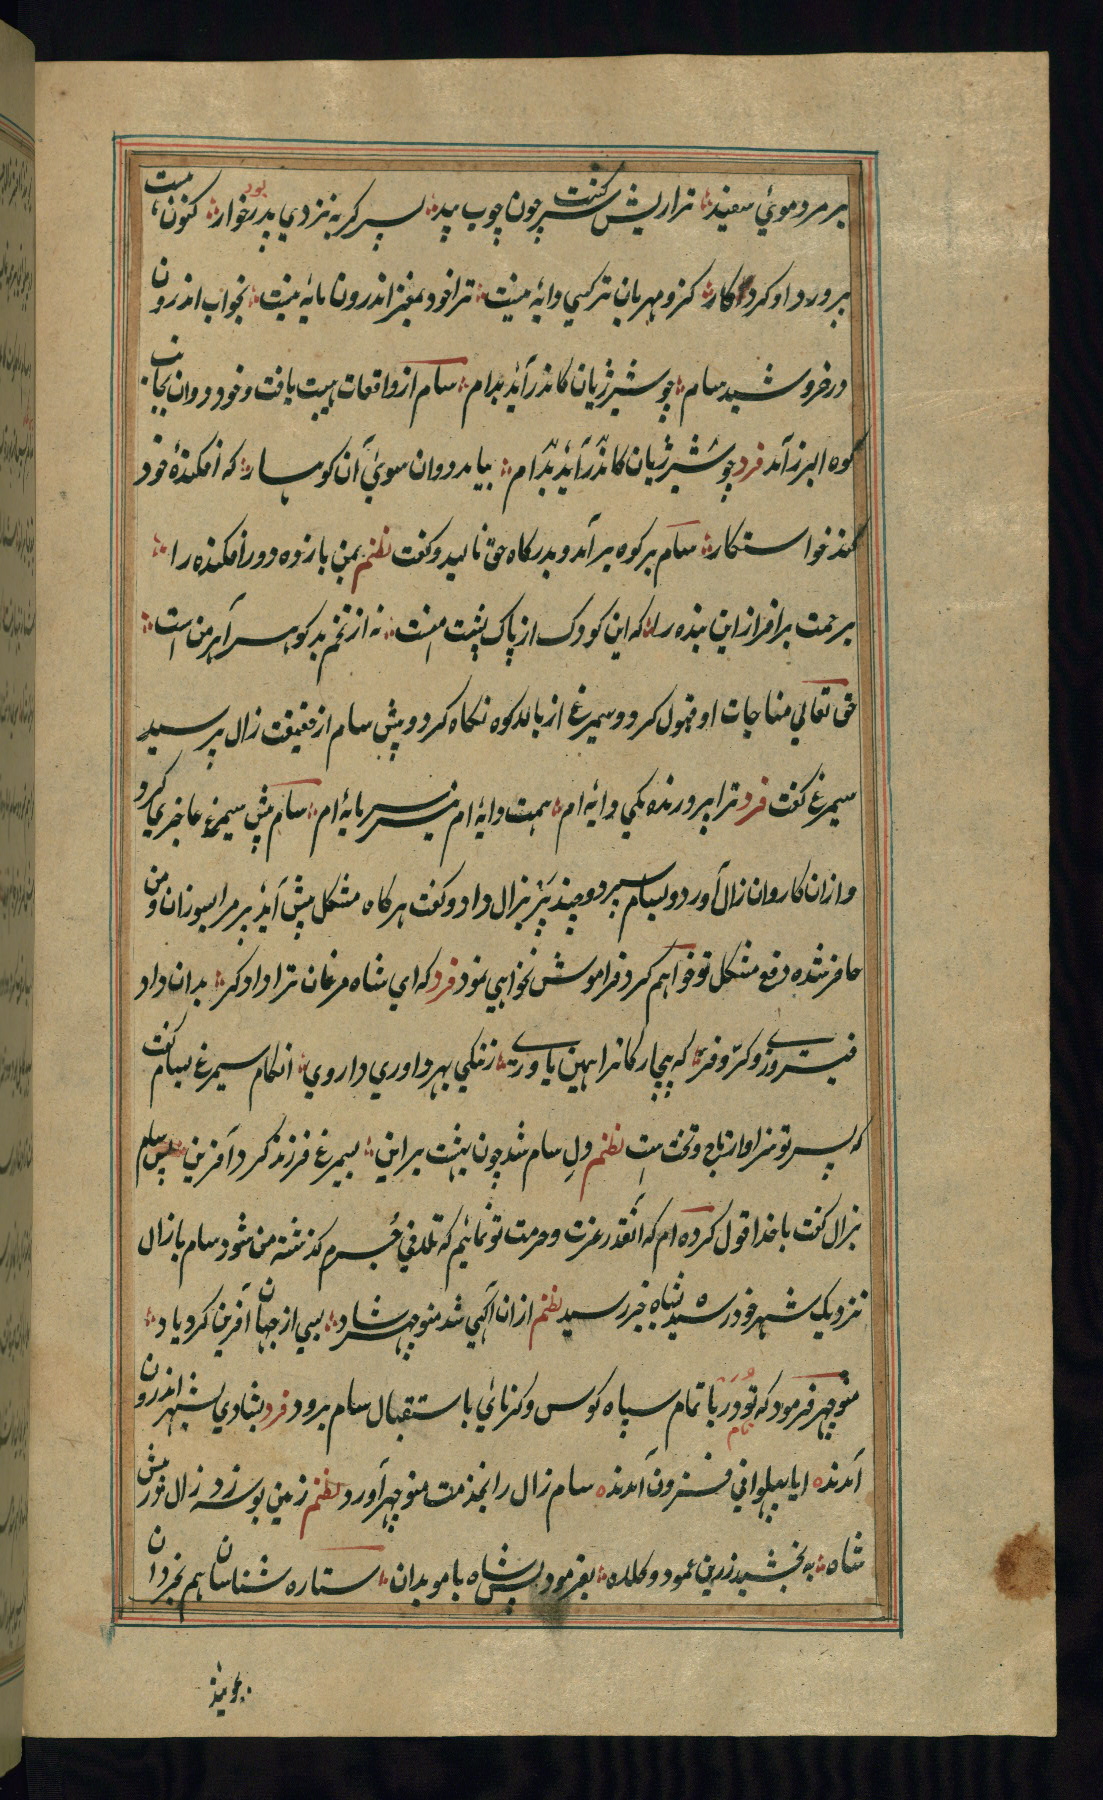 بر مرد موئ سفید ؞ ترا ریش و سر کشت چون چوب بید ؞ پسر کر به نزدی پدر بود خوار ؞ کنون هست
پرورد او کردکار ؞ کزو مهربان ترکسی دایۀ نیست ؞ ترا خود بمغز اندرون مایۀ نیست ؞ بخواب اندرون
در خروشید سام ؞ چو شیر ژیان کاندر آید بدام ؞ سام از واقعات هیبت یافت و خود دوان بجانب
کوه البرز آمد فرد چو شیر ژیان کاندر آید بدام ؞ بیامد دوان سوئ آن کوهسار ؞ که افکندۀ خود
کند خواستکار ؞ سام بر کوه برآمد و بدرکاه حق نالید و کفت نظم بمن باز ده دور افکنده را ؞
برحمت برافراز این بنده را ؞ که این کودک از پاک پشت منست ؞ نه از تخم بد کوهر آهرمن است ؞
حق تعالی مناجات او قبول کرد و سیمرغ از بالد کوه نکاه کرد و پیش سام از حقیقت زال پرسید
سیمرغ کفت فرد ترا پرورنده یکی دایۀ ام ؞ همت دایۀ ام نیز سرمایۀ ام ؞ سام پیش سیمرغ عاجزیها کرد
و ازان کاروان زال آورد و بسام سپرد و چند پر بزال داد و کفت هرکاه مشکل پیش آید پر مرا بسوزان و من
حاضر شده دفع مشکل تو خواهم کرد فراموش نخواهی نمود فرد که ای شاه مرغان ترا دادکر ؞ بدان داد
فیروزی و کرّ و فرّ ؞ که بیچارکانرا همین یاوری ؞ زنیکی بهر داوری داروی ؞ انکام سیمرغ بسام کفت
که پسر تو سزاوار تاج و تخت است نظم دلِ سام شد چون بهشت برین ؞ بسیمرغ فرزند کرد آفرین ؞ پس سام
بزال کفت با خدا قول کرده ام که آنقدر عزت و حرمت تو نمائیم که تلافی جُرم کذشته من شود سام با زال
نزدیک شهر خود رسید بشاه خبر رسید نظم ازان آکهی شد منوچهر شاد ؞ بسی از جهان آفرین کرد یاد ؞
منوچهر فرمود که نوذر با تمام سپاه کوس و کرنائ باستقبال سام برود فرد بشادی بشهر اندرون
آمدند ؞ ابا پهلوانی فزون آمدند ؞ سام زال را بخدمت منوچهر آورد نظم زمین بوسه زد زال زر پیش
شاه ؞ به بخشید زرین عمود و کلاه ؞ بفرمود پس شاه با موبدان ؞ ستاره شناسان و هم بخردان
بجویند